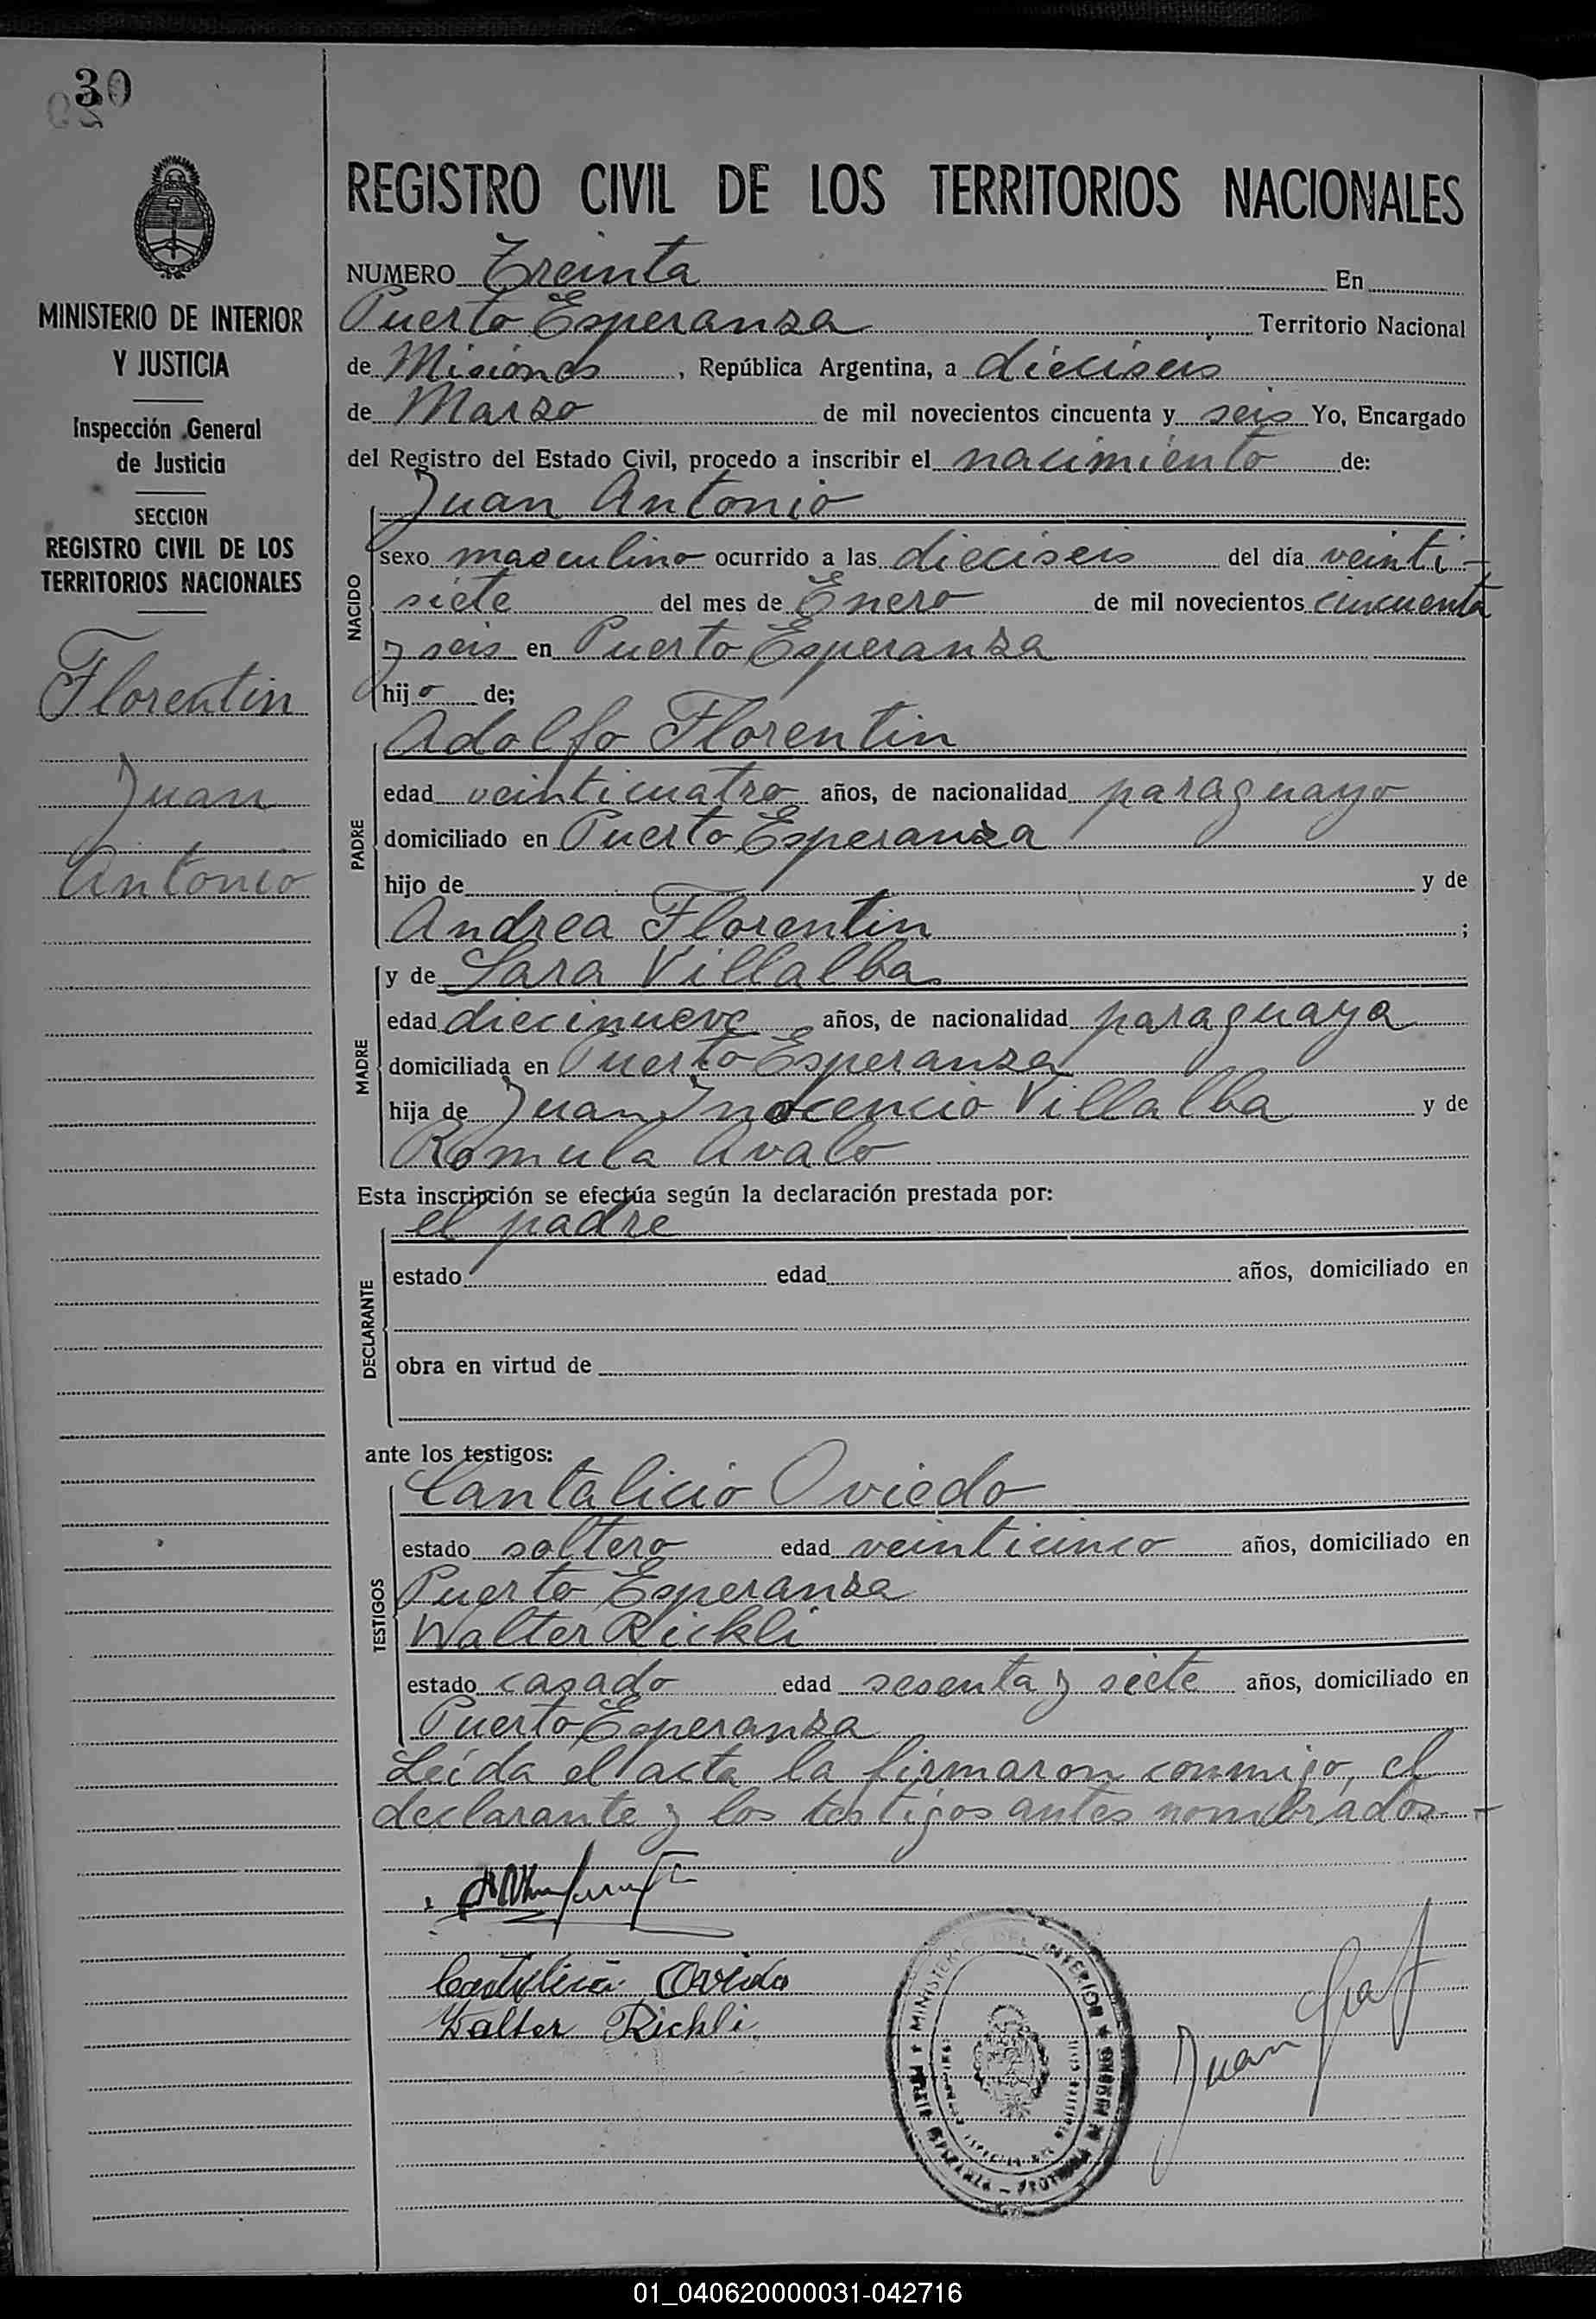 30
MINISTERIO DE INTERIOR
Y JUSTICIA
Inspección General
de Justicia
SECCION
REGISTRO CIVIL DE LOS
TERRITORIOS NACIONALES
Florentin
Juan
Antonio
REGISTRO CIVIL DE LOS TERRITORIOS NACIONALES
NUMERO Treinta En
Puerto Esperanza Territorio Nacional
de Misiones, República Argentina, a dieciseis
de Marzo de mil novecientos cincuenta y seis Yo, Encargado
del Registro del Estado Civil, procedo a inscribir el nacimiento de:
Juan Antonio
NACIDO
sexo masculino ocurrido a las dieciseis del día veinti-
siete del mes de Enero de mil novecientos cincuenta
y seis en Puerto Esperanza
hijo de;
Adolfo Florentin
PADRE
edad veinticuatro años, de nacionalidad paraguayo
domiciliado en Puerto Esperanza
hijo de y de
Andrea Florentin ;
y de Sara Villalba
MADRE
edad diecinueve años, de nacionalidad paraguaya
domiciliada en Puerto Esperanza
hija de Juan Inocencio Villalba y de
Romula Avalo
Esta inscripción se efectúa según la declaración prestada por:
el padre
DECLARANTE
estado edad años, domiciliado en
obra en virtud de
ante los testigos:
Cantalicio Oviedo
TESTIGOS
estado soltero edad veinticinco años, domiciliado en
Puerto Esperanza
Walter Rickli
estado casado edad sesenta y siete años, domiciliado en
Puerto Esperanza
Leída el acta la firmaron conmigo, el
declarante y los testigos antes nombrados-
Oviedo
Walter Rickli
MINISTERIO DEL INTERIOR
Juan
01_040620000031-042716